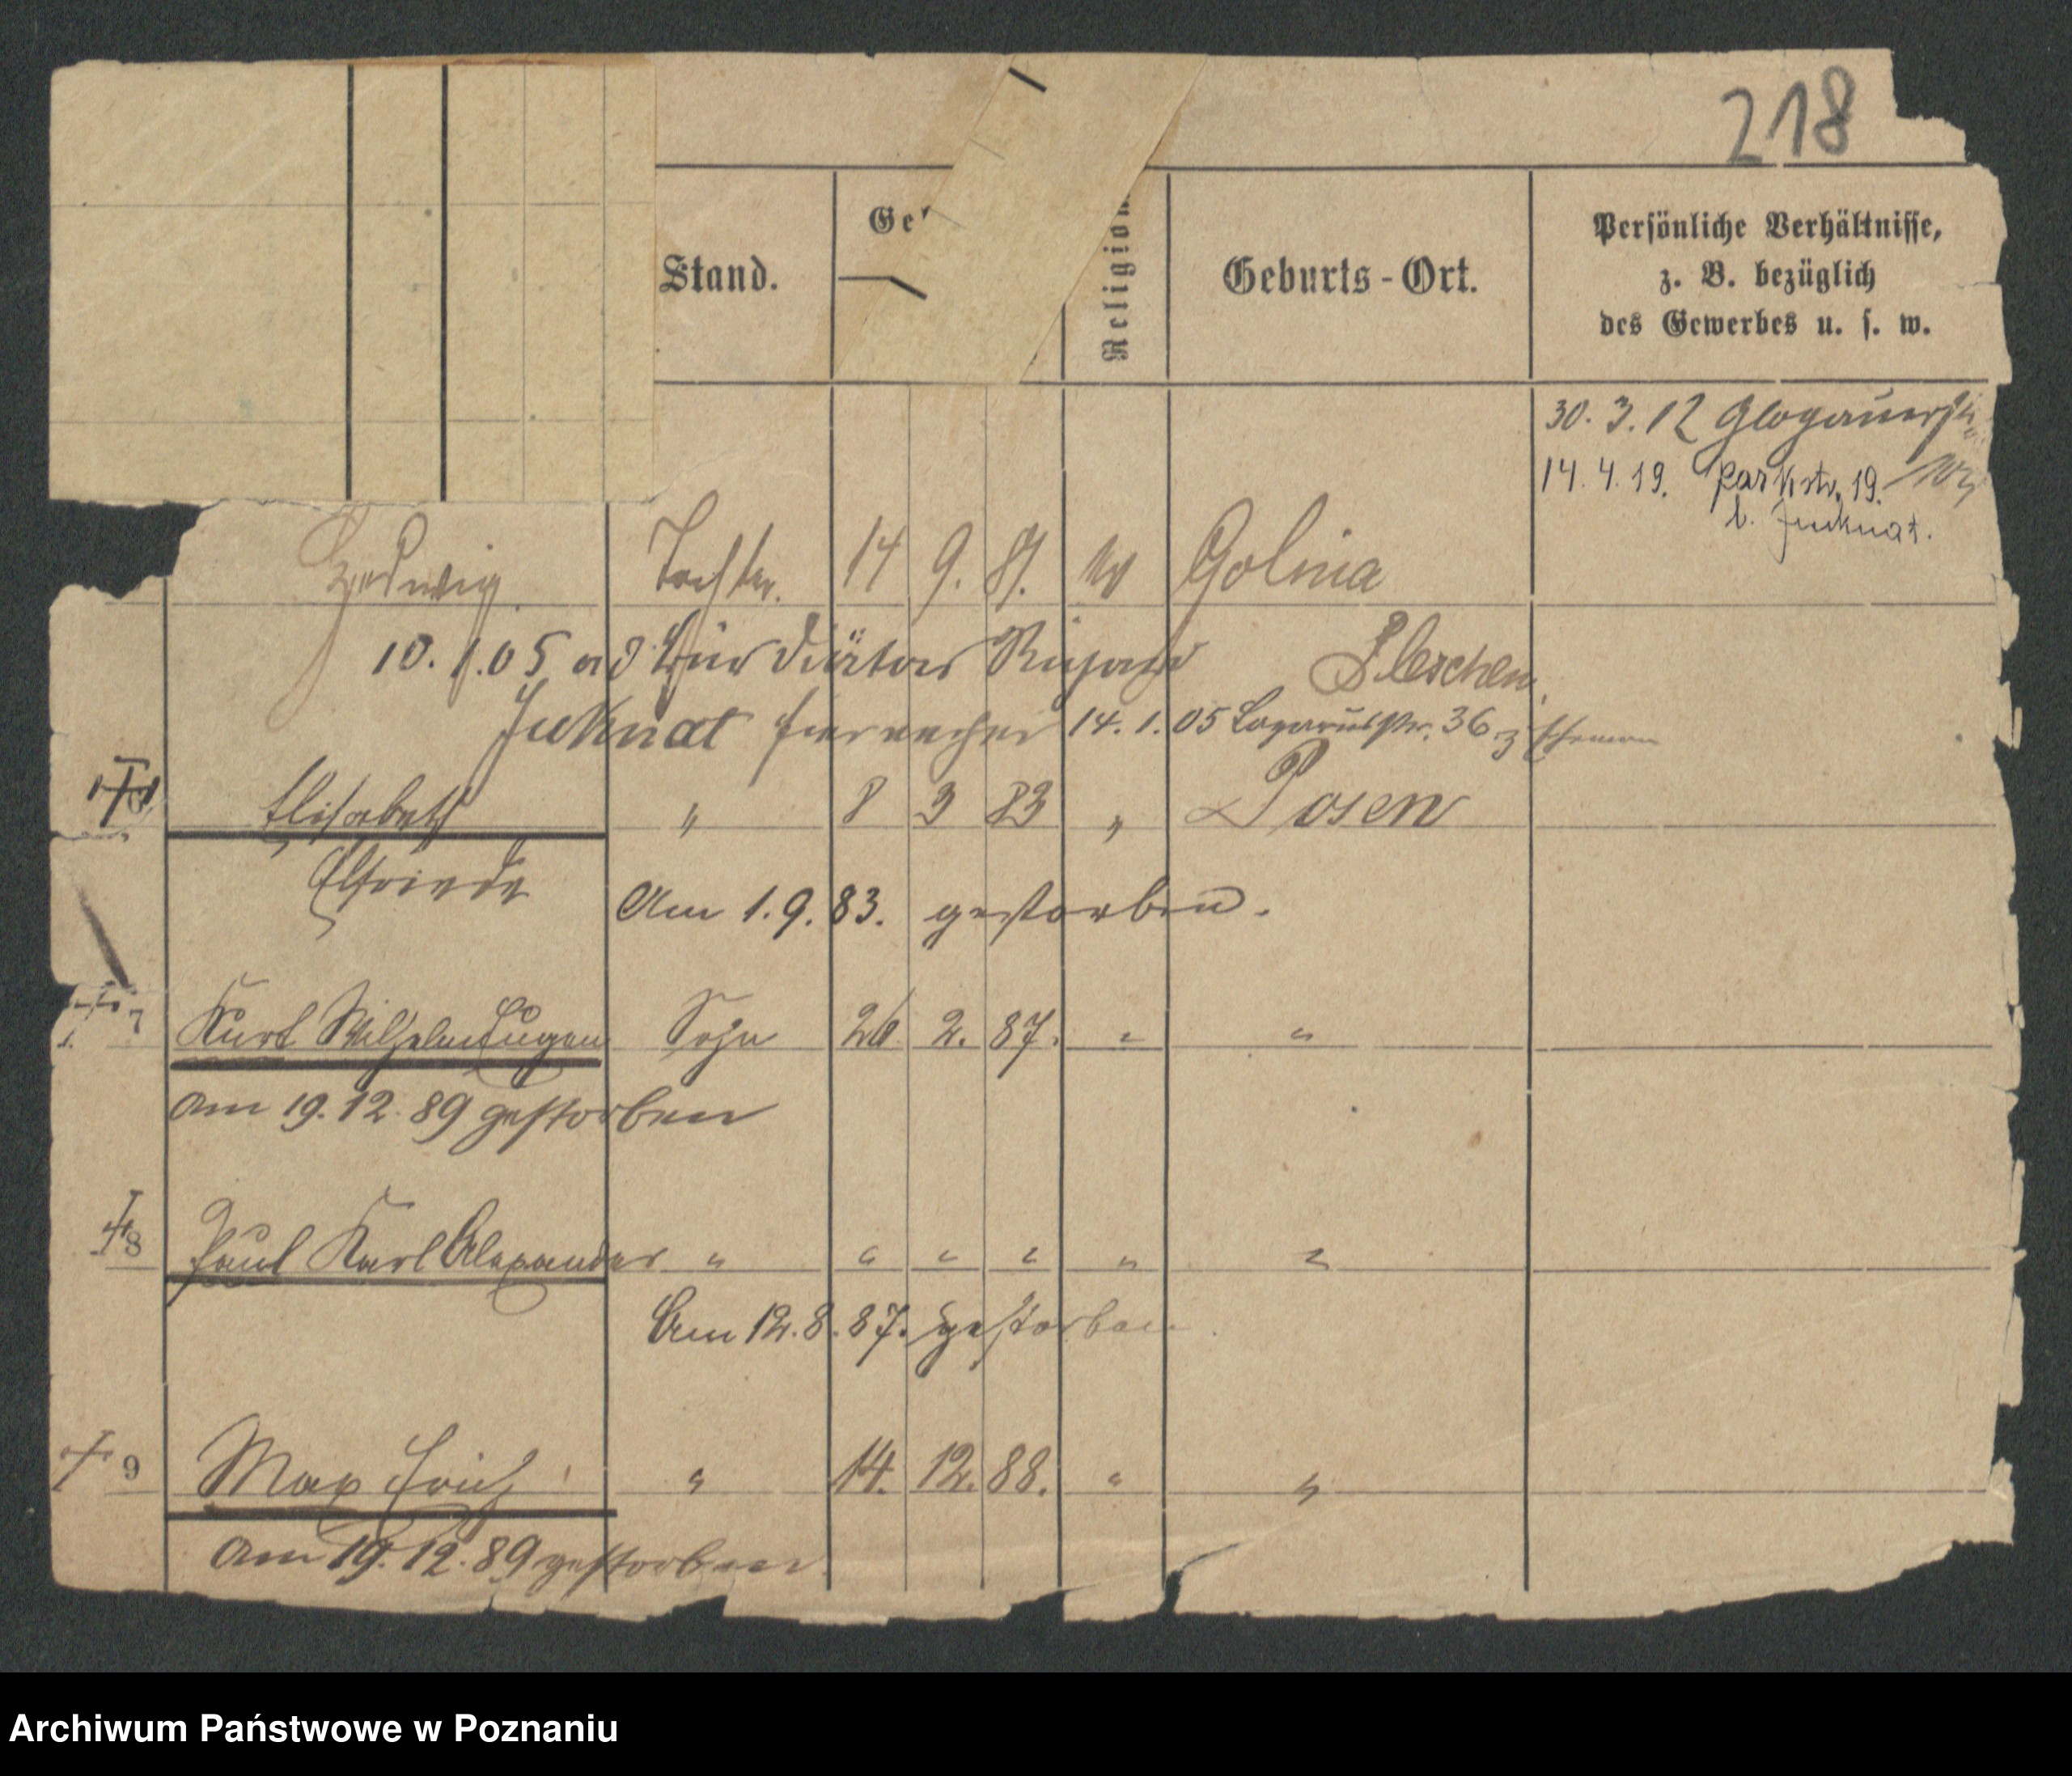 218
Stand.
Ge
Religion
Geburts-Ort.
Persönliche Verhältnisse,
z. B. bezüglich
des Gewerbes u. s. w.
30. 3. 12 Glogauerstr
14. 4. 19. Parkstr. 19.
b. Juknat.
Hedwig Tochter. 14 9. 81. Golina
10. 1. 05 ad Diätar Pleschen
Juknat 14. 1. 05 Lazarusstr. 36 z Ehemann
Elisabeth " 8 3 83 " Posen
Elfriede
Am 1. 9. 83. gestorben.
7 Kurt Wilhelm Eugen Sohn 26 2. 87. " "
Am 19. 12. 89 gestorben
8 Paul Karl Alexander " " " " " "
Am 12. 8. 87. gestorben.
9 Max Erich " 14. 12. 88. " "
Am 19. 12. 89 gestorben.
Archiwum Państwowe w Poznaniu